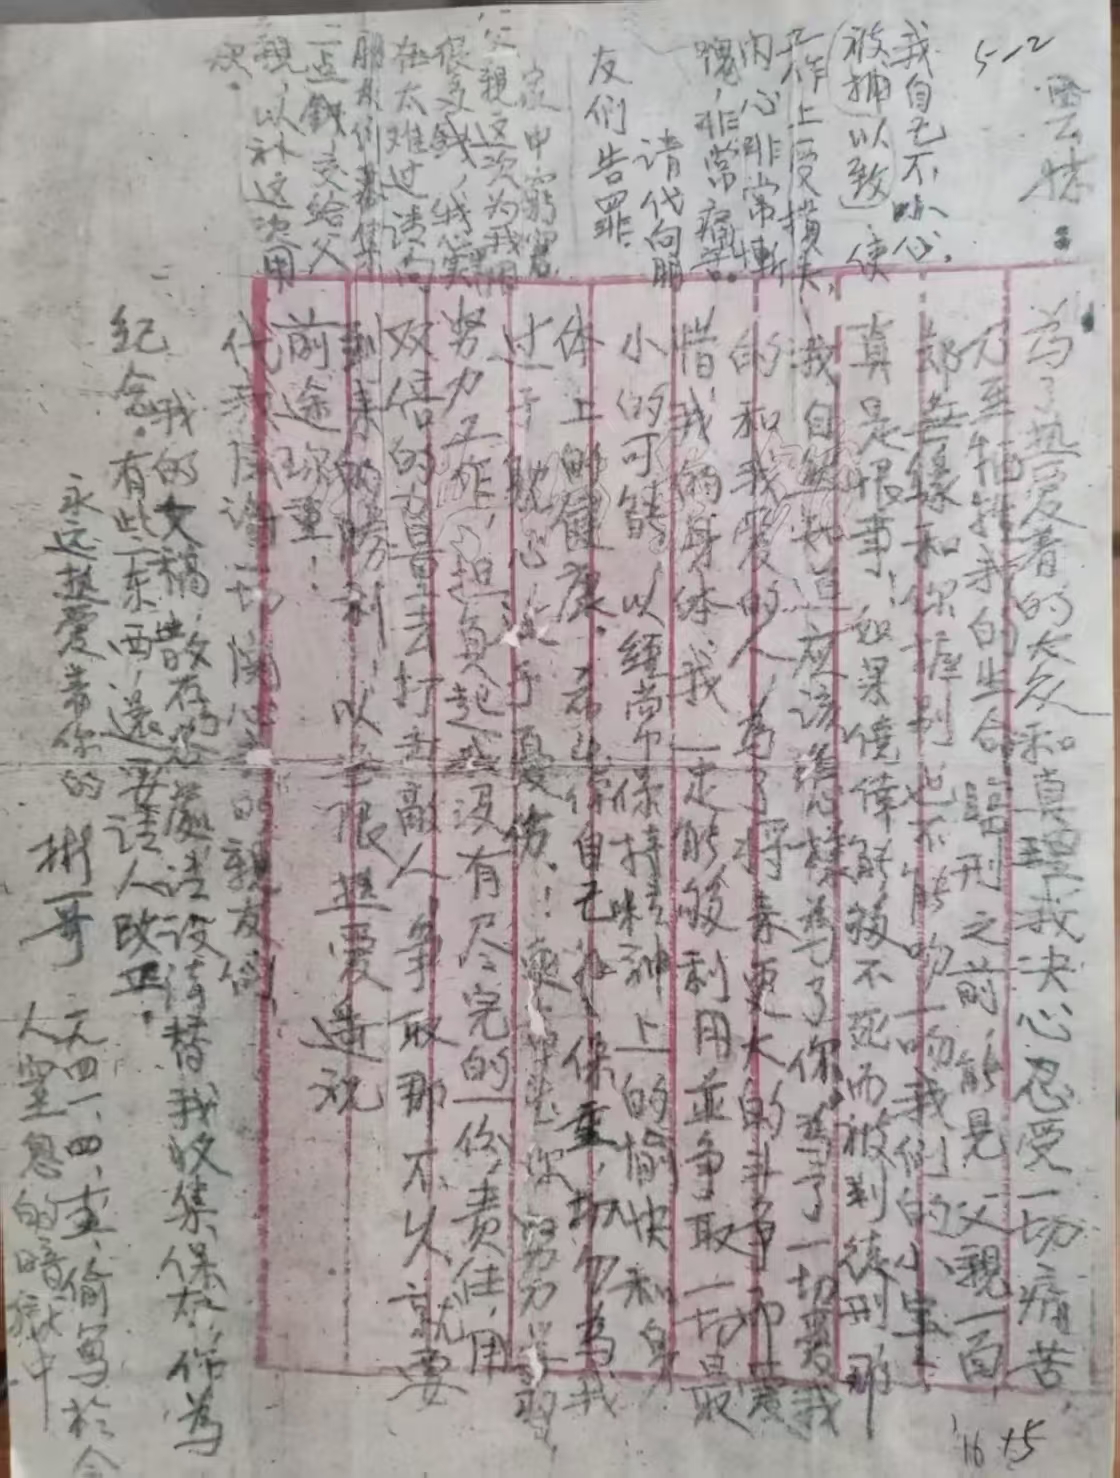 雲妹：
为了热爱着的大众和真理我决心忍受一切痛苦，
乃至牺牲我的生命 臨刑之前，能見父親一面，
却無緣和你握别也不能吻一吻我们的小宝宝
真是恨事！如果僥倖能够不死而被判徒刑那
我自然知道应该怎樣为了你，为了一切爱我
的和我爱的人，为了将来更大的斗争而愛
惜我病身体，我一定能够利用並争取一切最
小的可能，以經常保持精神上的愉快和身
体上的健康。希望你自己保重，切勿为我
过于耽心，过于憂伤！你努力学習，
努力工作，担負起我没有尽完的一份責任，用
双倍的力量去打击敵人，争取那不久就要
到来的勝利！以無限热愛遥祝
前途珍重！
代我感謝一切関心我的親友们！
我的文稿，散存各處，请设法替我收集保存，作为
纪念。有些东西，還要请人改正。
永远热愛着你的
彬哥
一九四一、四、 偷写於令
人窒息的暗獄中
我自己不小心，
（被捕）以致使
工作上受損失，
内心非常慚
愧，非常痛苦。
请代向朋
友们告罪。
家中窮窘
父親这次为我用
很多錢，我实
在太难过，请向
朋友们募集
一点錢，交给父
親，以补这次用
决。
5-2
16
+5